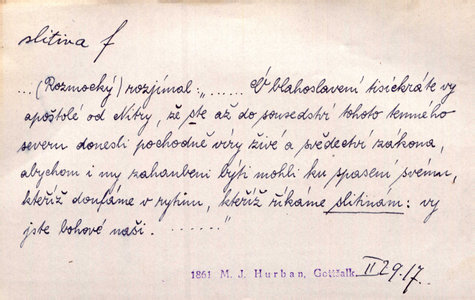 slitina f
...(Rozmocký) rozjímal: „...... Ó blahoslavení tisíckráte vy
apoštolé od Nitry, že ste až do sousedství tohoto temného
severu donesli pochodně víry živé a svědectví zákona,
abychom i my zahanbeni býti mohli ku spasení svému,
kteříž doufáme v rytiny, kteříž říkáme slitinám: vy
jste bohové naši. ......."
1861 M. J. Hurban, Gottšalk. II 29.17.